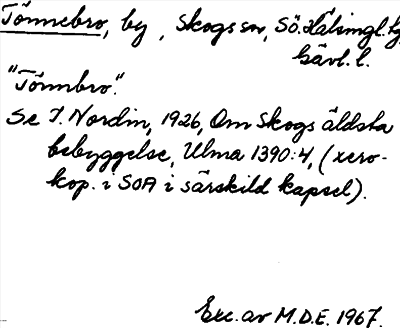 Tönnebro, by, Skogs sn, Sö. Hälsingl. tg,
Gävl. l.
"Tönnbro".
Se I. Nordin, 1926, Om Skogs äldsta
bebyggelse, Ulma 1390:4, (xero-
kop. i SOA i särskild kapsel).
Exc. av M.D.E. 1967.